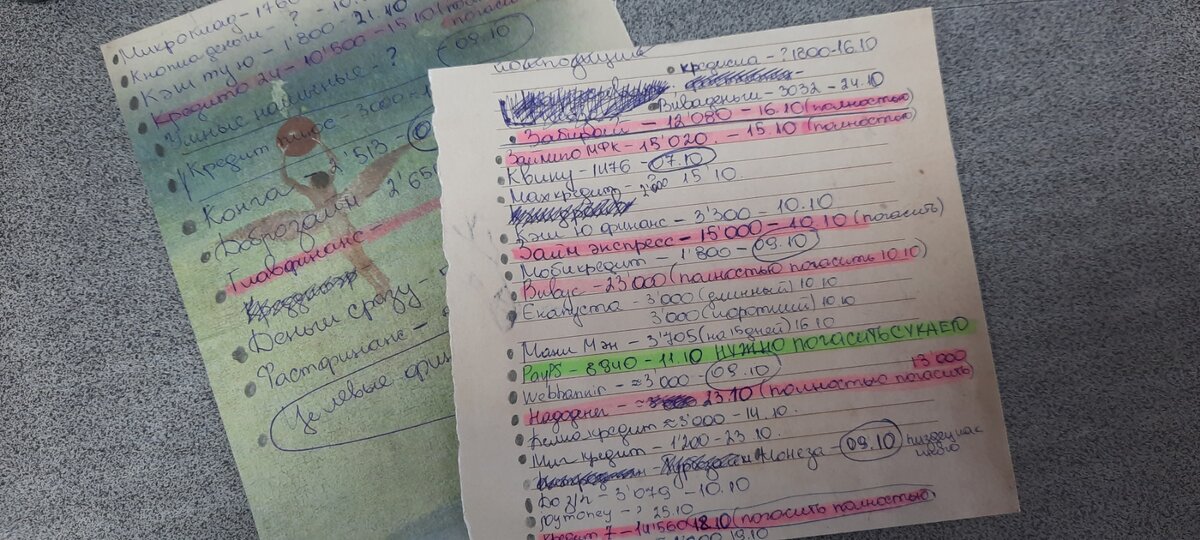 Кэш ту ю - 1'800 - 21.10
Кредито 24 - 10'800 - 15.10
погасить
Умные наличные - ?
09.10
Кредит плюс - 3000
Конга - 2'513
Доброзайм 2'65
Главфинанс -
Деньги сразу -
Растфинанс -
Целевые фин
кредиска - ? 1800 - 16.10
Виваденьги - 3032 - 24.10
Забирай - 12'080 - 16.10 (полностью)
Займиго МФК - 15'020 - 15.10 (полностью)
Квику - 1476 - 07.10
Махкредит - 15 10
Кэш Ю финанс - 3'300 - 10.10
Займ экспресс - 15'000 - 10.10 (погасить)
Мобикредит - 1'800 - 09.10
Вивус - 23'000 (полностью погасить 10.10)
Екапуста - 3'000 (длинный) 10.10
3'000 (короткий) 10.10
Мани Мэн - 3'705 (на 15 дней) 16.10
PayPS - 8840 - 11.10 НУЖНО ПОГАСИТЬ СУКАЕГО
Webbankir - ≈3'000 - 09.10
13'000
Надоденег - 23.10 (полностью погасить)
кредит ≈ 3'000 - 14.10.
Миг кредит - 1'200 - 23.10.
Монеза - 09.10
До з/п - 3'079 - 10.10
Paymoney - ? 25.10
Кредит 7 - 14'560 18.10 (погасить полностью)